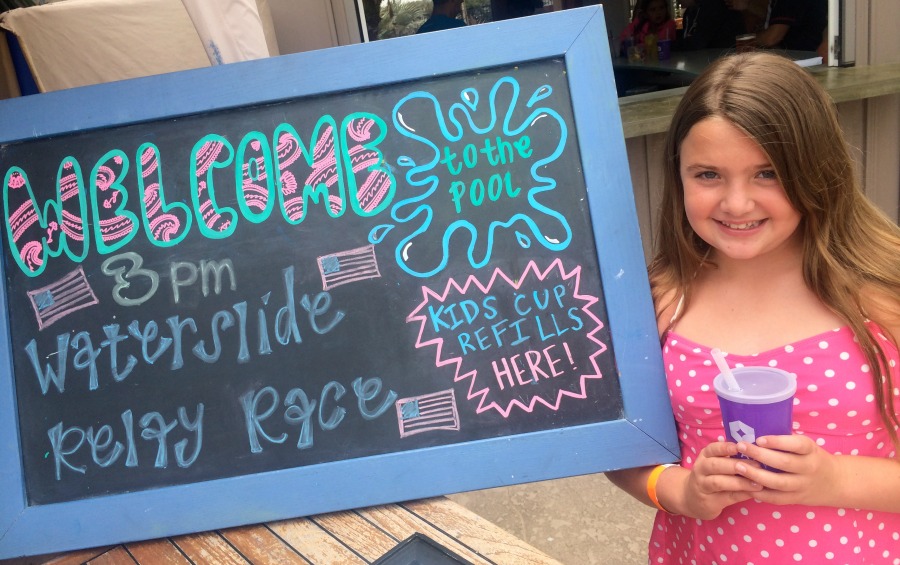 WELCOME
to the
POOL
3pm
Waterslide
Relay Race
KIDS CUP
REFILLS
HERE!